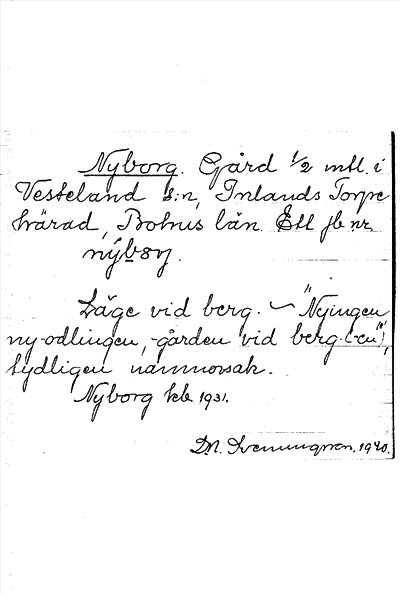 Nyborg. Gård 1/2 mtl. i
Vesterland s:n, Inlands Torpe
härad, Bohus län. Ett jb nr.
Läge vid berg. ~ "Nyingen
ny-odlingen, -gården vid berg-(-en)",
tydligen namnorsak.
Nyborg kb 1931.
D.N. 1940.